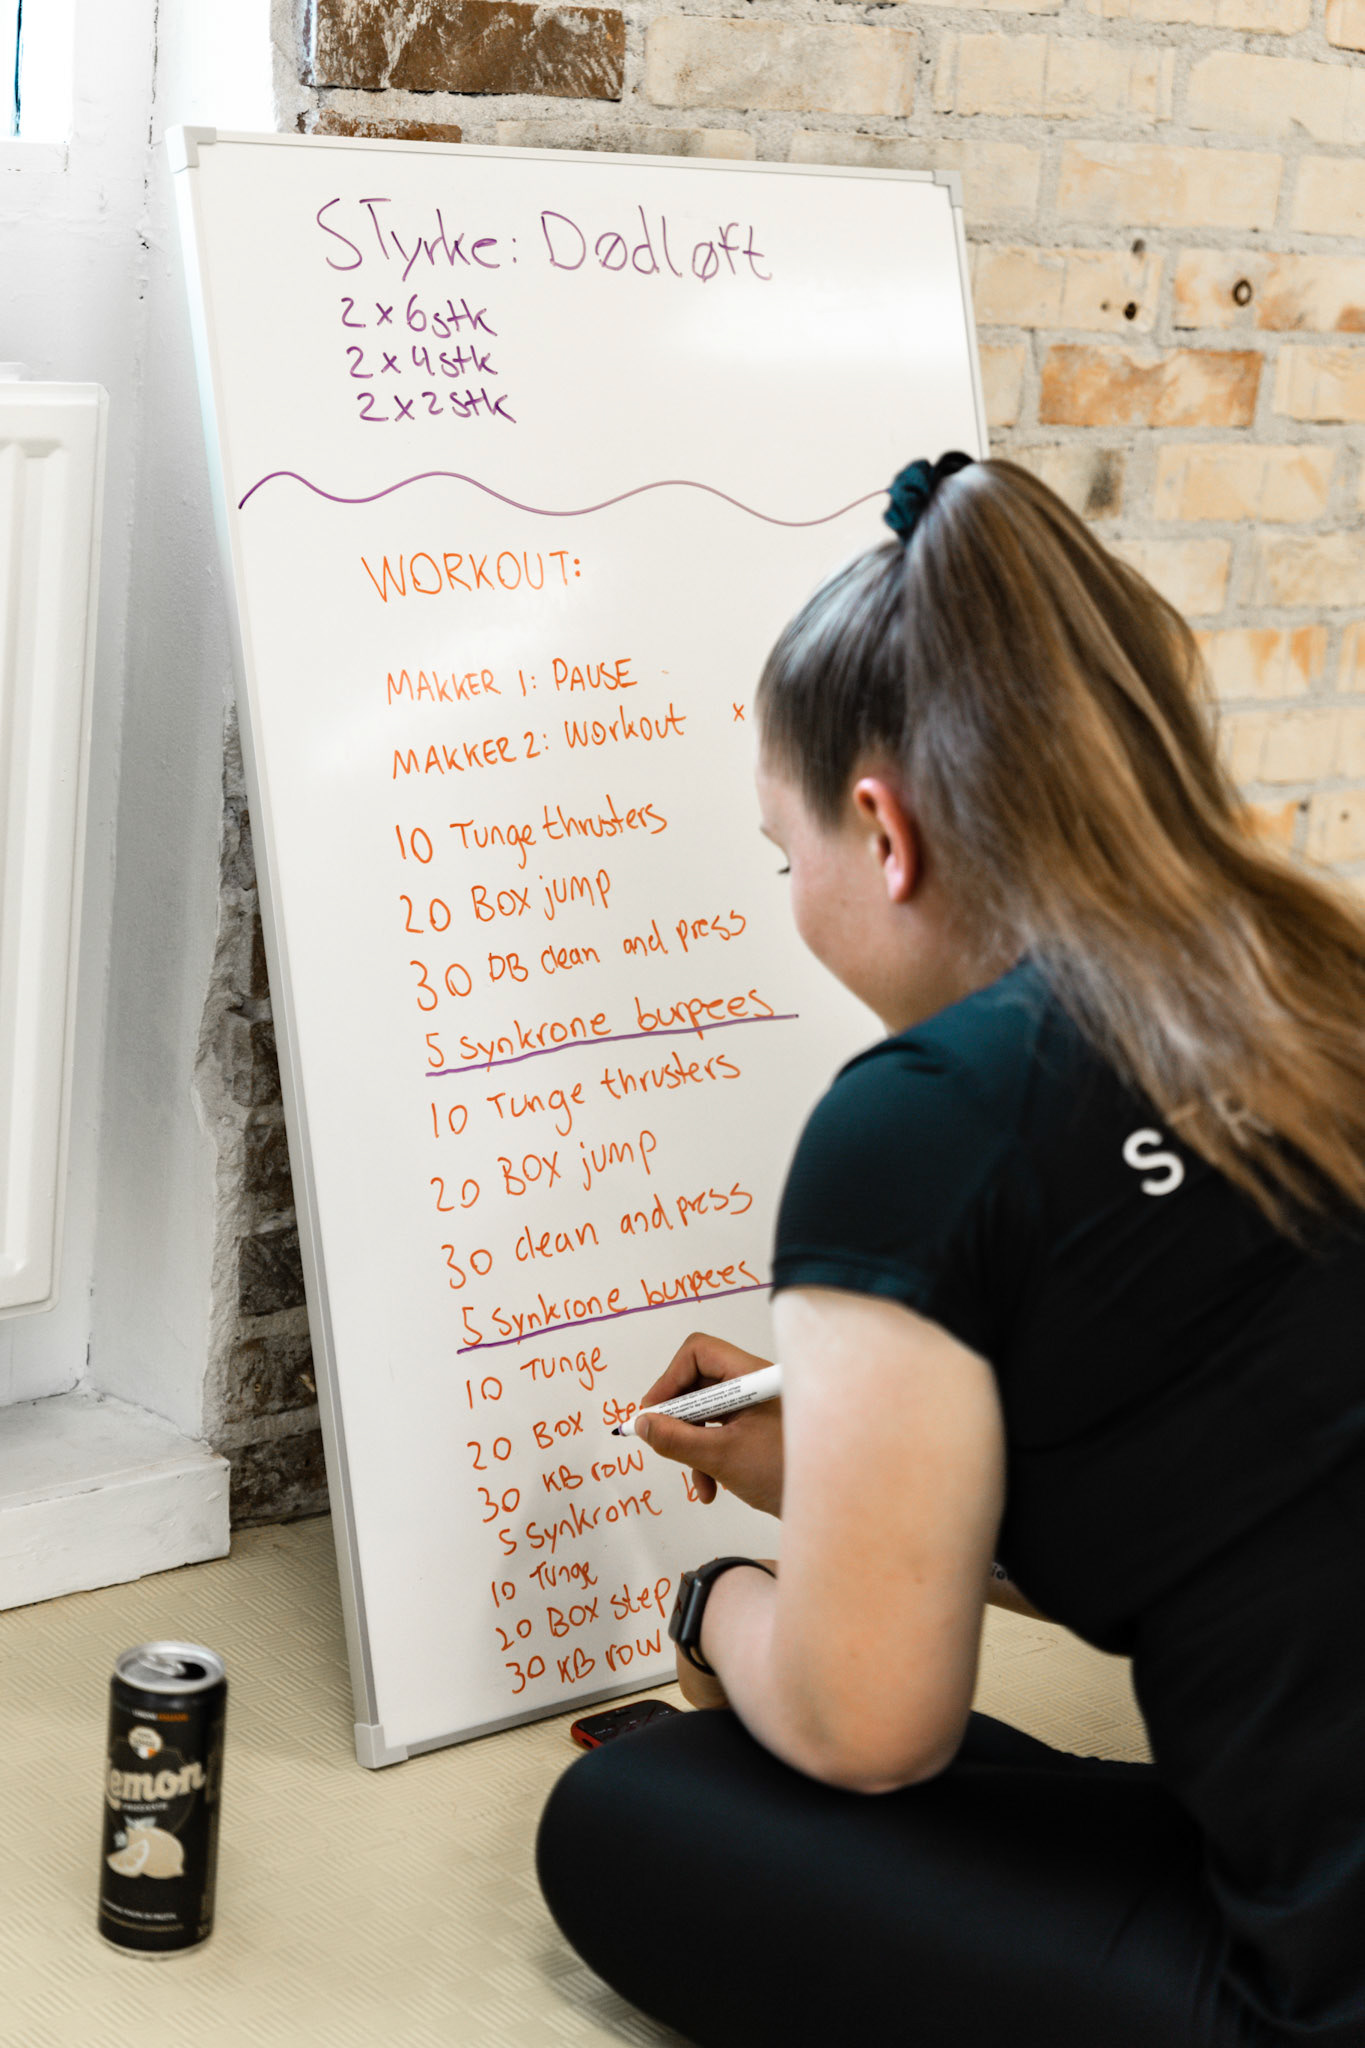 STyrke: Dødløft
2 x 6 stk
2 x 4 stk
2 x 2 stk
WORKOUT:
MAKKER 1: PAUSE
MAKKER 2: Workout x
10 Tunge thrusters
20 Box jump
30 DB clean and press
5 synkrone burpees
10 Tunge thrusters
20 BOX jump
30 clean and press
5 Synkrone burpees
10 Tunge
20 BOX
30 KB row
5 Synkrone
10 Tunge
20 BOX step
30 KB row
S
Lemon